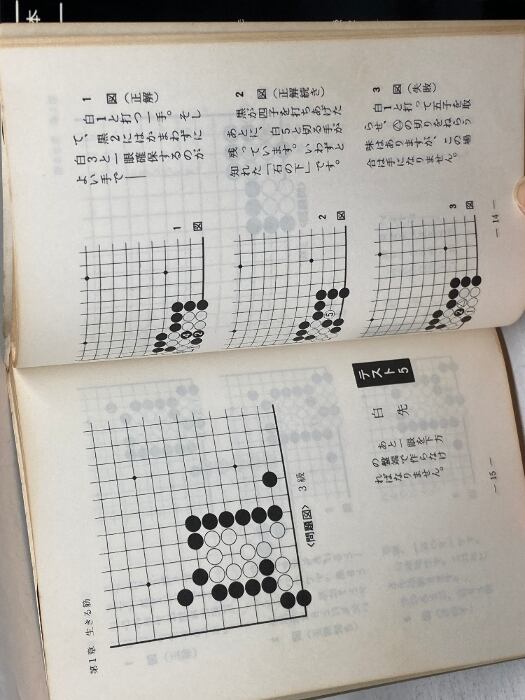 1 図(正解)
白1と打つ一手。そし
て、黒2にはかまわずに
白3と一眼確保するのが
よい手で——
2 図(正解続き)
黒が四子を打ちあげた
あとに、白5と切る手が
残っています。いわずと
知れた「石の下」です。
3 図(失敗)
白1と打って五子を取
らせ、△の切りをねらう
味はありますが、この場
合は手になりません。
1図
2図
5
3図
— 14 —
第1章 生きる筋
〈問題図〉 3級
テスト5
白先
あと一眼を下方
の盤端で作らなけ
ればなりません。
— 15 —